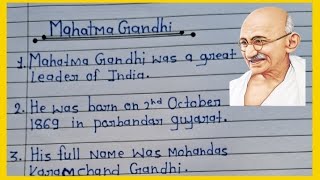 Mahatma Gandhi
1. Mahatma Gandhi was a great
leader of India.
2. He was born on 2nd October
1869 in porbandar gujarat.
3. His full Name was Mohandas
Karamchand Gandhi.